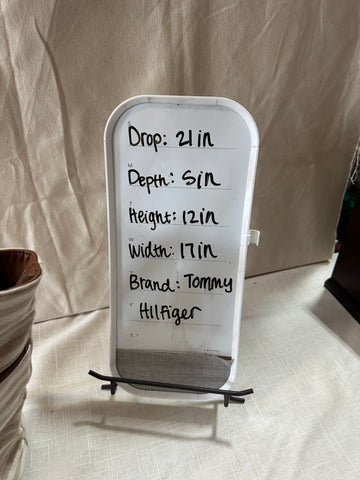 Drop: 21in
Depth: 5in
Height: 12in
Width: 17in
Brand: Tommy
Hilfiger